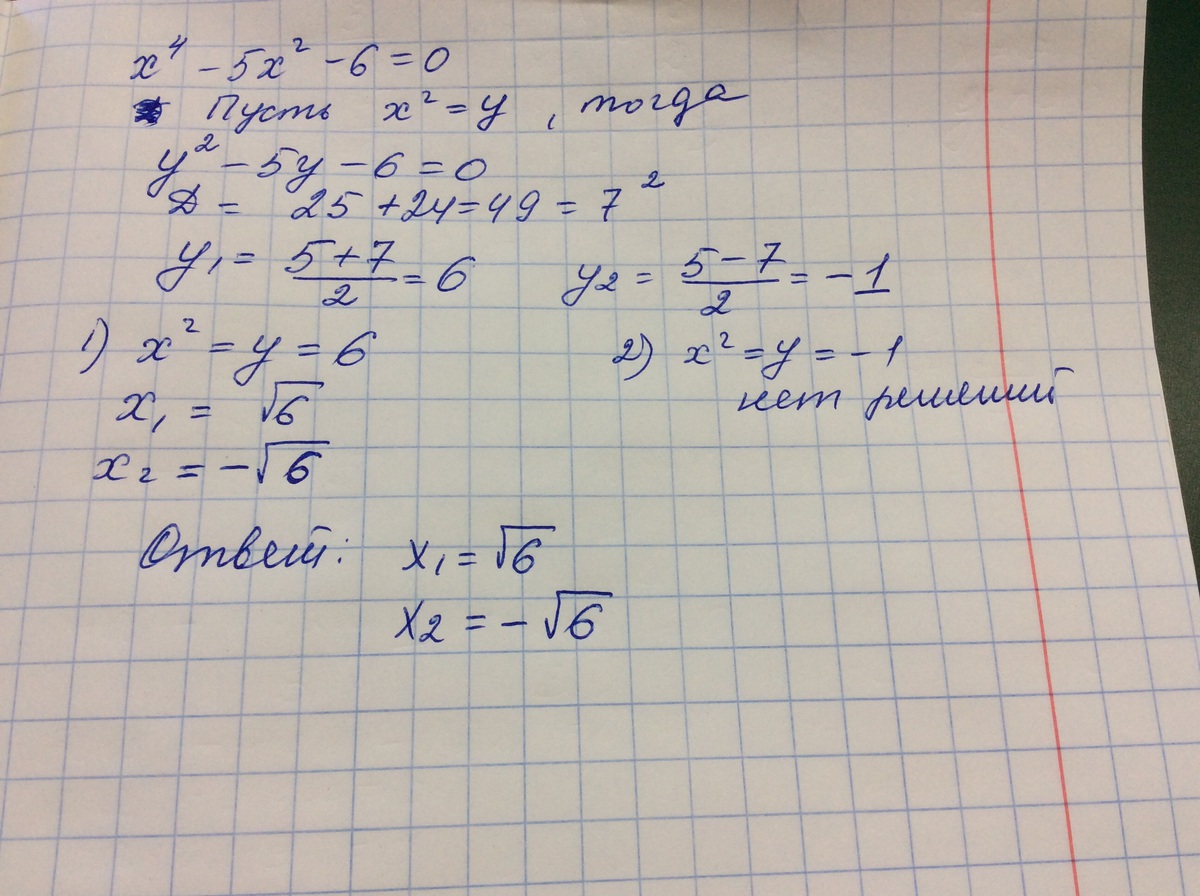 x⁴ - 5x² - 6 = 0
Пусть x² = y, тогда
y² - 5y - 6 = 0
D = 25 + 24 = 49 = 7²
y₁ = (5+7)/2 = 6 y₂ = (5-7)/2 = -1
1) x² = y = 6 2) x² = y = -1
нет решений
x₁ = √6
x₂ = -√6
Ответ: x₁ = √6
x₂ = -√6